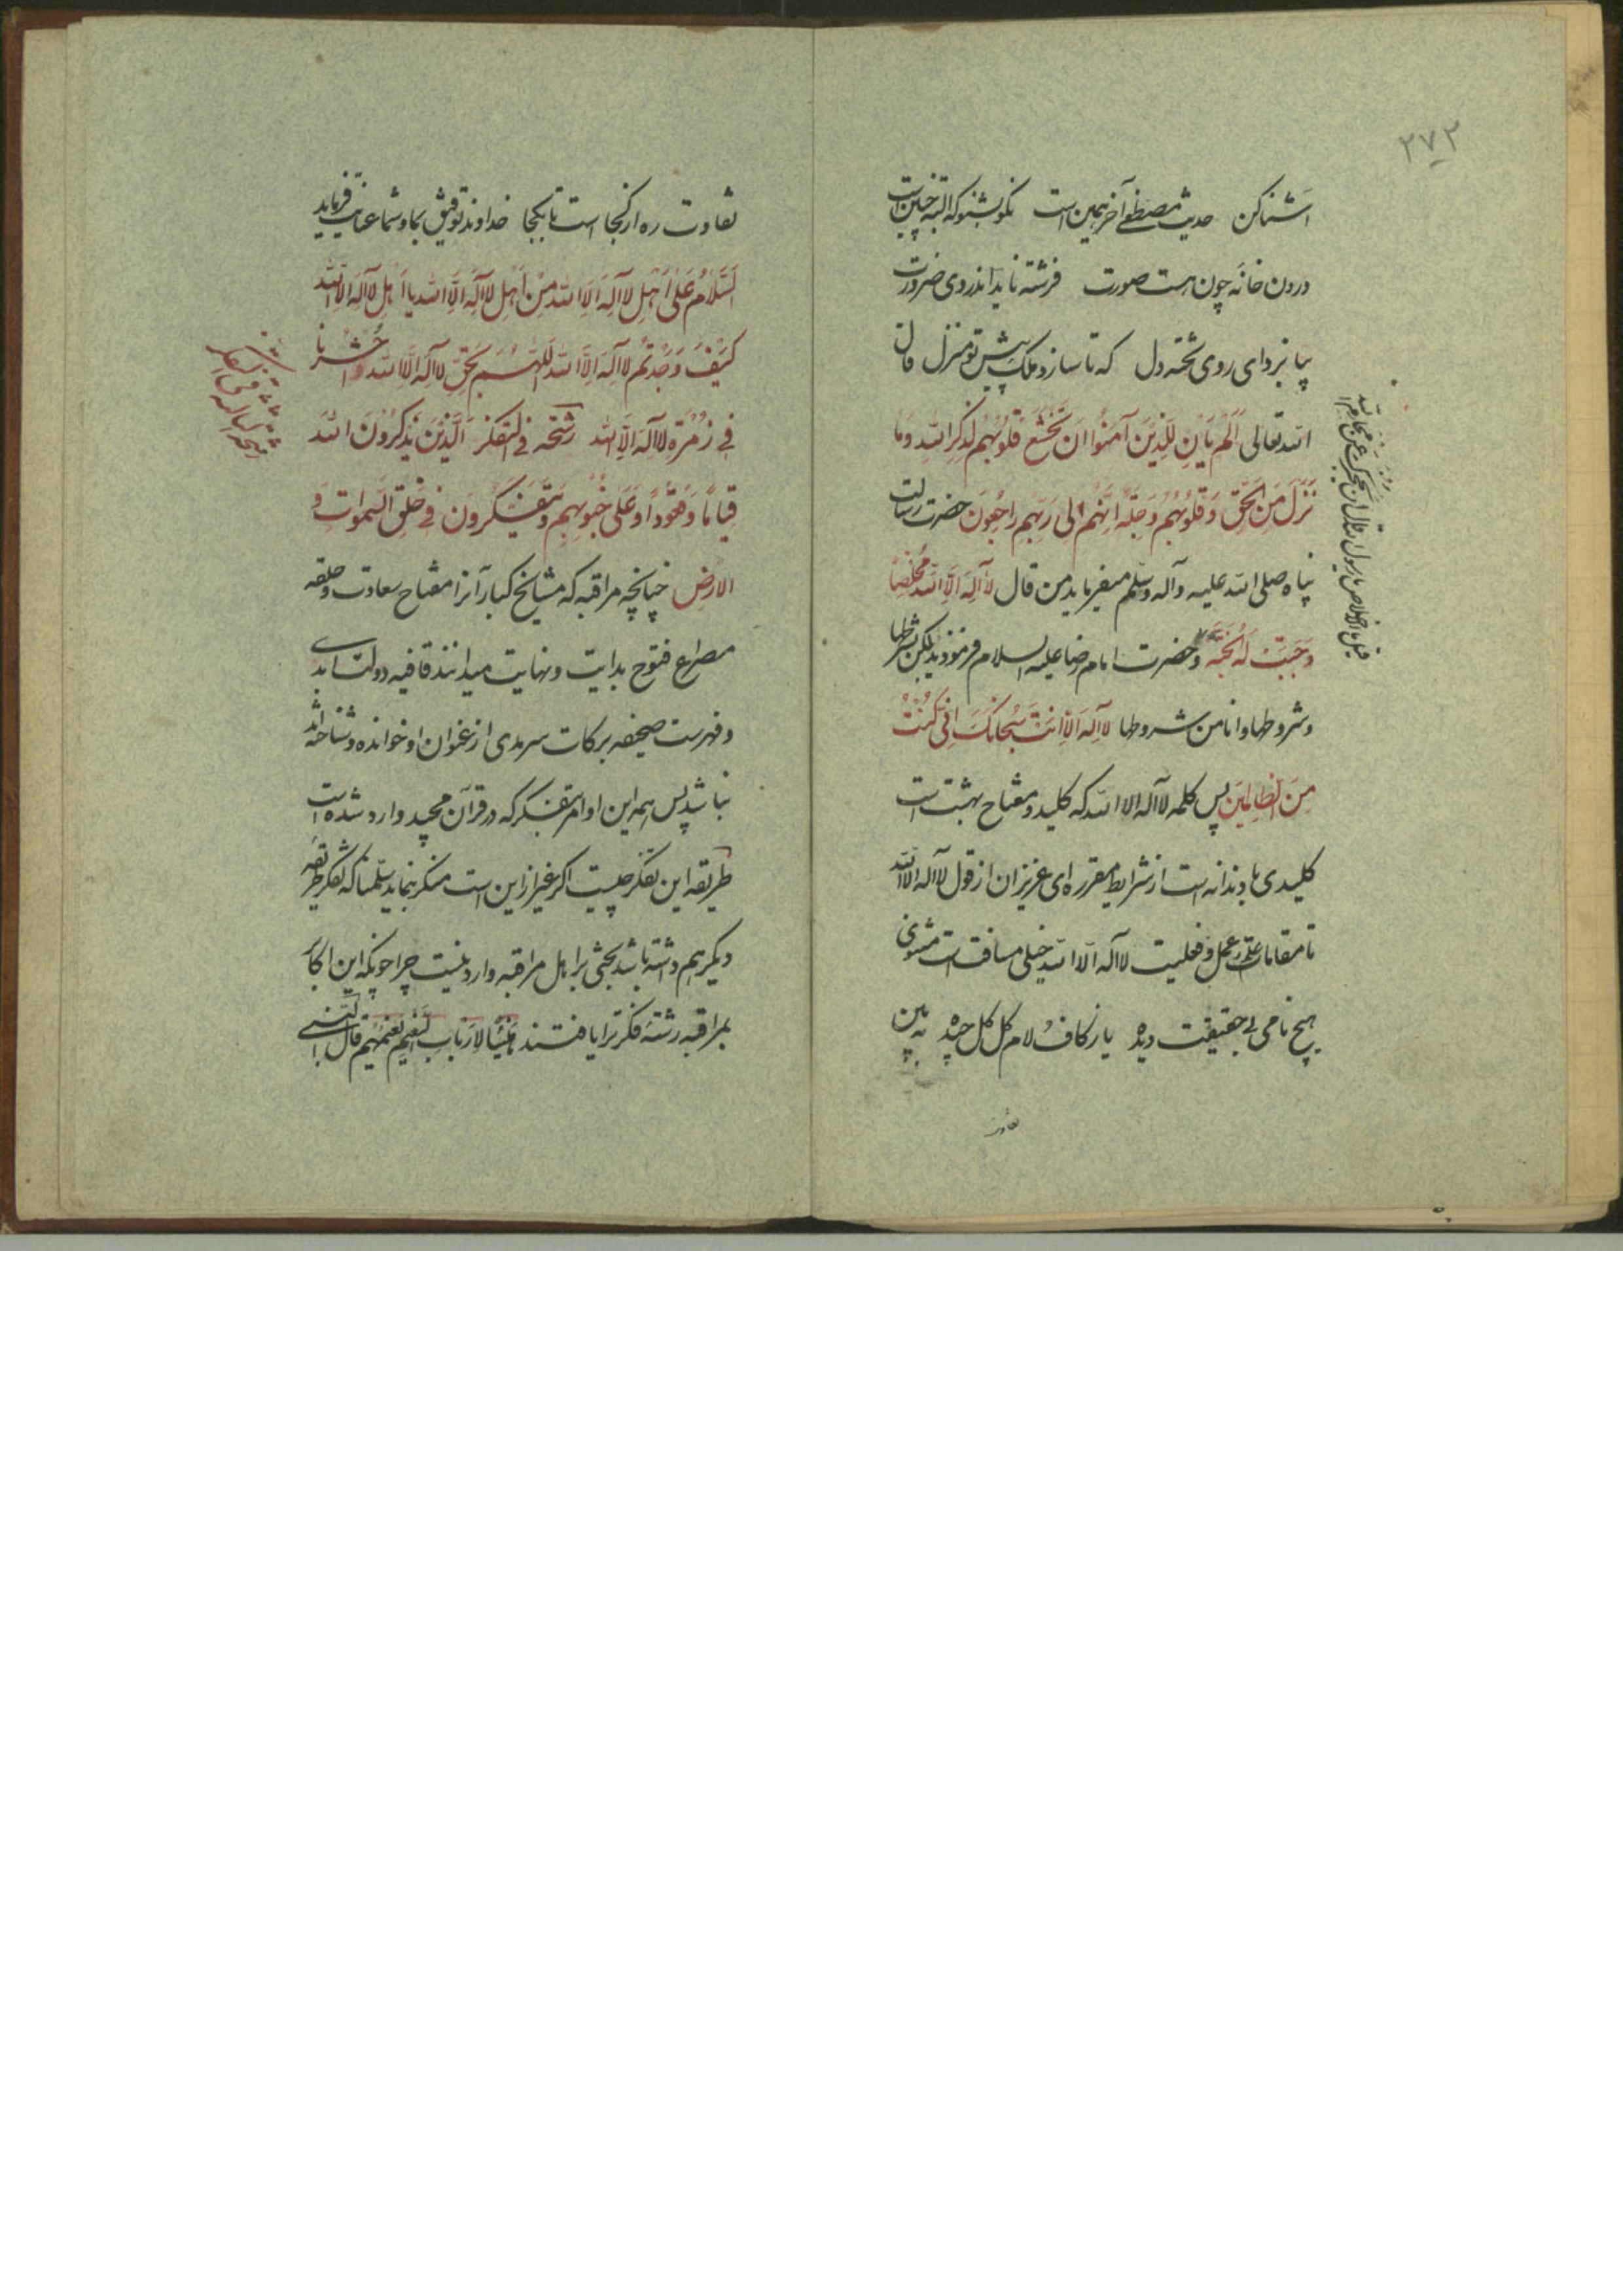 ۲۷۲
اشنا کن حدیث مصطفی آخر همین است نکو بشنو که البته چنین است
درون خانه چون هست صورت فرشته ناید اندر وی ضرورت
بیا بزدای روی تخته دل که تا سازد ملک پیش تو منزل قال
الله تعالی اَلَم یَأنِ لِلَّذینَ آمَنُوا اَن تَخشَعَ قُلُوبُهُم لِذِکرِ اللّهِ وَما
نَزَلَ مِنَ الحَقِّ وَقُلُوبُهُم وَجِلَة اَنَّهُم اِلی رَبِّهِم راجِعُونَ حضرت رسالت
پناه صلی الله علیه وآله وسلم میفرماید من قال لا آلِهَ اِلَّا اللّه مُخلِصاً
وَجَبَت لَهُ الجَنَّه و حضرت امام رضا علیه السلام فرمودند لکن بشرطها
وشروطها وانا من شروطها لا آلِهَ اِلّا اَنتَ سُبحانَکَ اِنّی کُنتُ
مِنَ الظّالِمینَ پس کلمه لا آله الا الله که کلید و مفتاح بهشت است
کلیدی با دندانه است از شرایط مقرره ای عزیزان از قول لا اله الا الله
تا مقامات علم وعمل وفعلیت لا آله الّا الله خیلی مسافت است مثنوی
هیچ نامی بی حقیقت دیده یا ز کاف و لام گل گل چیده به بین
تفاوت
قیل ما اخلاص یا رسول الله قال ان یحجزک عن محارم الله
تفاوت ره از کجا است تا بکجا خداوند توفیق بما وشما عنایت فرماید
اَلسَّلامُ عَلی اَهلِ لا آلِهَ اِلَّا اللّه مِن اَهلِ لا آلِهَ اِلَّا اللّه یا اَهلِ لا آلِهَ اِلَّا اللّه
کَیفَ وَجَدتُم لا آلِهَ اِلَّا اللّه اَللّهُمَّ بَحَقِّ لا آلِهَ اِلَّا اللّه وَاحشُرنا
فی زُمرَةِ لا آلِهَ اِلَّا اللّه رشحه فی التفکر اَلَّذینَ یَذکُرُونَ اللّهَ
قِیاماً وَقُعُوداً وَعَلی جُنُوبِهِم وَیَتَفَکَّرُونَ فی خَلقِ السَّمواتِ وَ
الاَرضِ چنانچه مراقبه که مشایخ کبار آنرا مفتاح سعادت وحلقه
مصراع فتوح بدایت ونهایت میدانند قافیه دولت ابدی
وفهرست صحیفه برکات سرمدی از عنوان او خوانده وشناخته اند
نباشد پس همه این اوامر بتفکر که در قرآن مجید وارد شده است
طریقه این تفکر چیست اکر غیر از این است منکر بنماید سلمنا که تفکر طریقه
دیکر هم داشته باشد بحثی بر اهل مراقبه وارد نیست چرا چونکه این اکابر
بمراقبه رشتهٔ فکرترا یافتند هَنیئاً لِاَربابِ النَّعیمِ نَعیمُهُم قال النبی